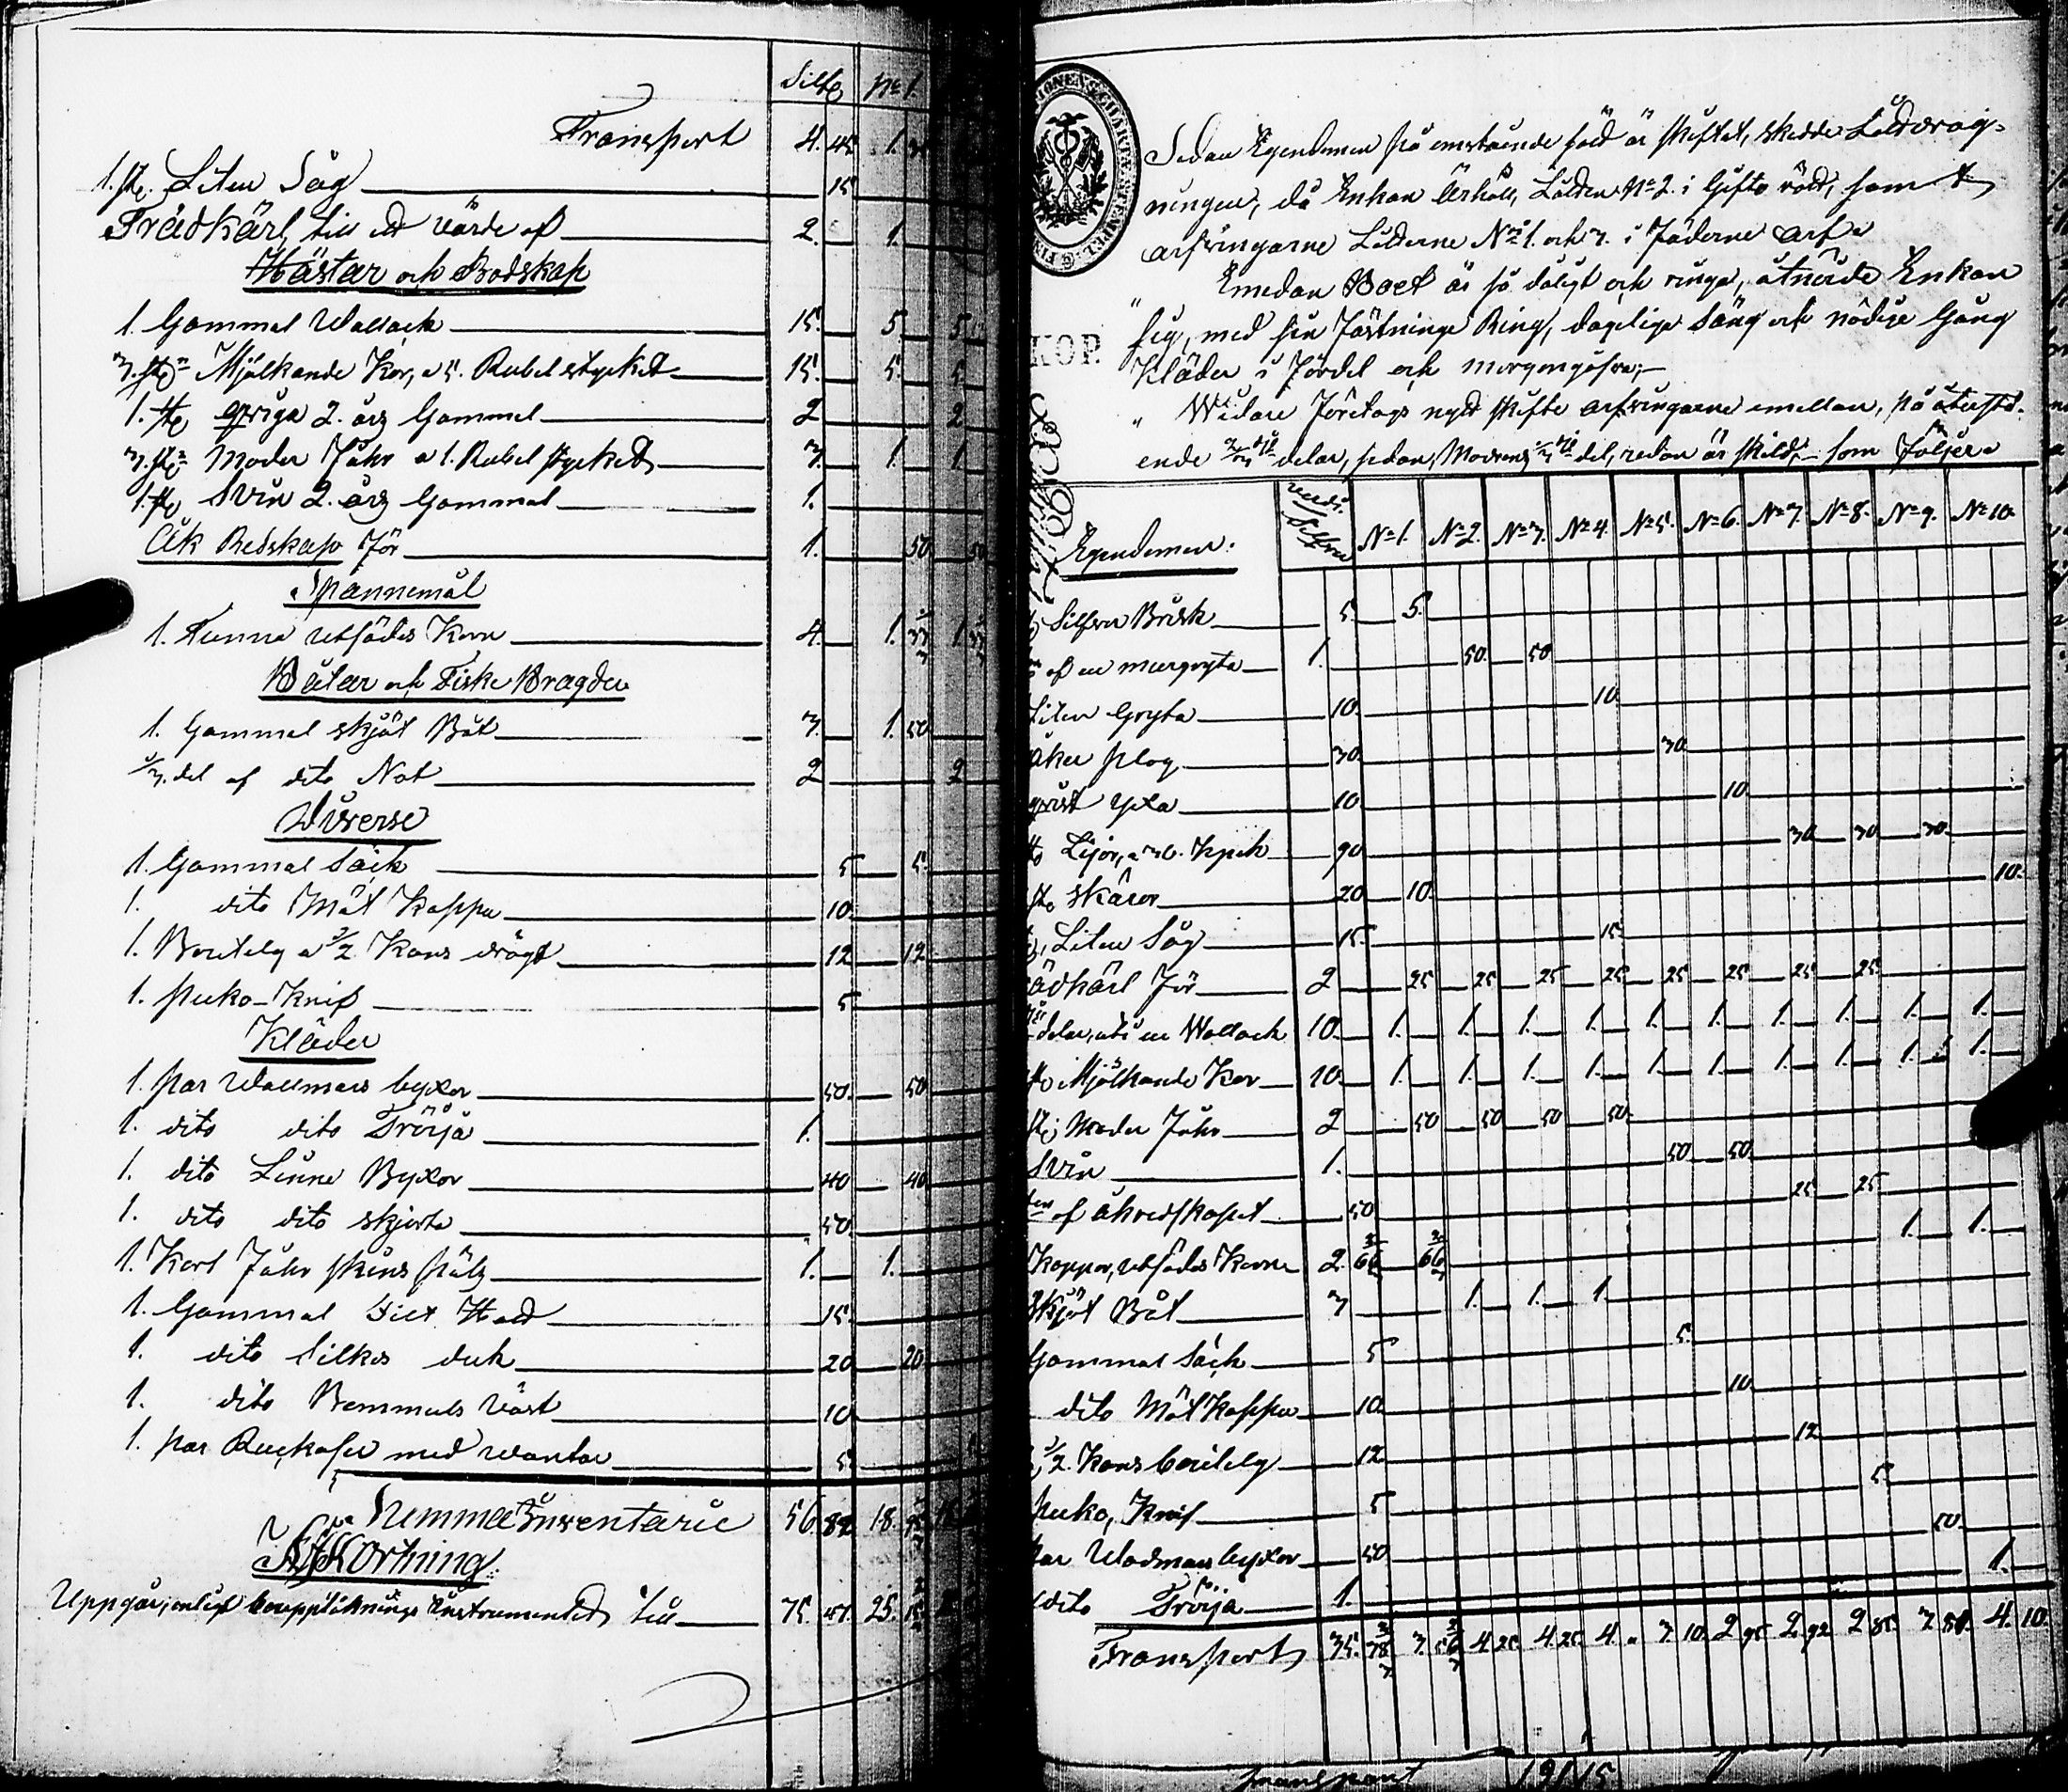 Silfr No 1.
Transport 4. 42 1.
1. st. Liten Såg 15
Trädkärl, till ett värde af 2. 1.
Hästar och Bodskap
1. Gammal Wallack 15. 5 5
3. st. Mjölkande Kor, a 5. Rubel stycket 15. 5. 5
1. st. qviga 2. årg Gammel 2 2
3. st. Moder Fåhr a 1. Rubel stycket 3. 1. 1.
1. st. Svin 2. årg Gammal 1.
Åk Redskap för 1. 50 50
Spannemål
1. Tunna utsädes Korn 4. 1. 33 1. 33
Båtar och Fiske Bragder
1. Gammal skjöt Båt 3. 1. 50
1/3. del af dito Not 2 2
Diverse
1. Gammal Säck 5 5.
1. dito Mät Kappa 10
1. Boutelg a 1/2 Kans drägt 12 12
1. puko-Knif 5
Kläder
1. par Wallmars byxor 50. 50
1. dito dito Tröija 1.
1. dito Linne Byxor 40 40
1. dito dito skjorta 50.
1. Karl Fåhr skins pälg 1. 1.
1. Gammal Filt Hatt 15.
1. dito Silkes duk 20 20
1. dito Bommuls väst 10
1. par med wantar 5
Summa Inventarie 56. 82 18.
Afkortning
Uppgår, enligt bouppteknings Instrumentet, till 75. 47. 25.
Sedan Egendomen på omstående säd är skiftat, skedde Lottdrag-
ningen, då Enkan Erhöll, Lotten No 2. i Gifto rätt, samt
arfvingarne Lotterne No 1. och 3. i Fäderne arf.
Emedan Boet är så dåligt och ringa, åtnöide Enkan
sig, med sin Fästninge Ring, dagelige Säng och nödige Gång
KOP.
Kläder i Fördel och morgongåfva,
" Widare Företogs nytt skifte arfvingarne emellan, på återstå-
ende 2/3 delar, sedan, Modrens 1/3 del, redan är skild, som Följer
Egendomen. Silfver No 1. No 2. No 3. No 4. No 5. No 6. No 7. No 8. No 9. No 10.
Silfver Brisk 5. 5.
af en murgryta 1. 50. 50
Liten Gryta 10 10
åker plog 30. 30
qvist yxa 10 10.
Lijor, a 30. Kpek 90 30 30 30
st. skäror 20 10. 10.
Liten Såg 15. 15.
ädkärl för 2 25 25 25 25 25 25 25 25
delar, uti en Wallack 10. 1. 1. 1. 1. 1. 1. 1. 1. 1. 1.
Mjölkande Kor 10. 1. 1. 1. 1. 1. 1. 1. 1. 1. 1.
st. Moder Fåhr 2 50 50 50 50
Svin 1. 50 50
af åkredskapet 50 25 25
Kappor, utsädes Korn 2. 66 66 1. 1.
Skjöt Båt 3 1. 1. 1.
Gammal Säck 5 5.
dito Mät Kappa 10. 10
1/2. Kans boutelg 12 12
puko, Knif 5 5.
par Wadmars byxor 50 50
dito Tröija 1. 1.
Transport 35. 78 3. 56 4. 25 4. 25. 4. " 3. 10 2 95 2. 92 2 85. 3. 80. 4. 10.
transport